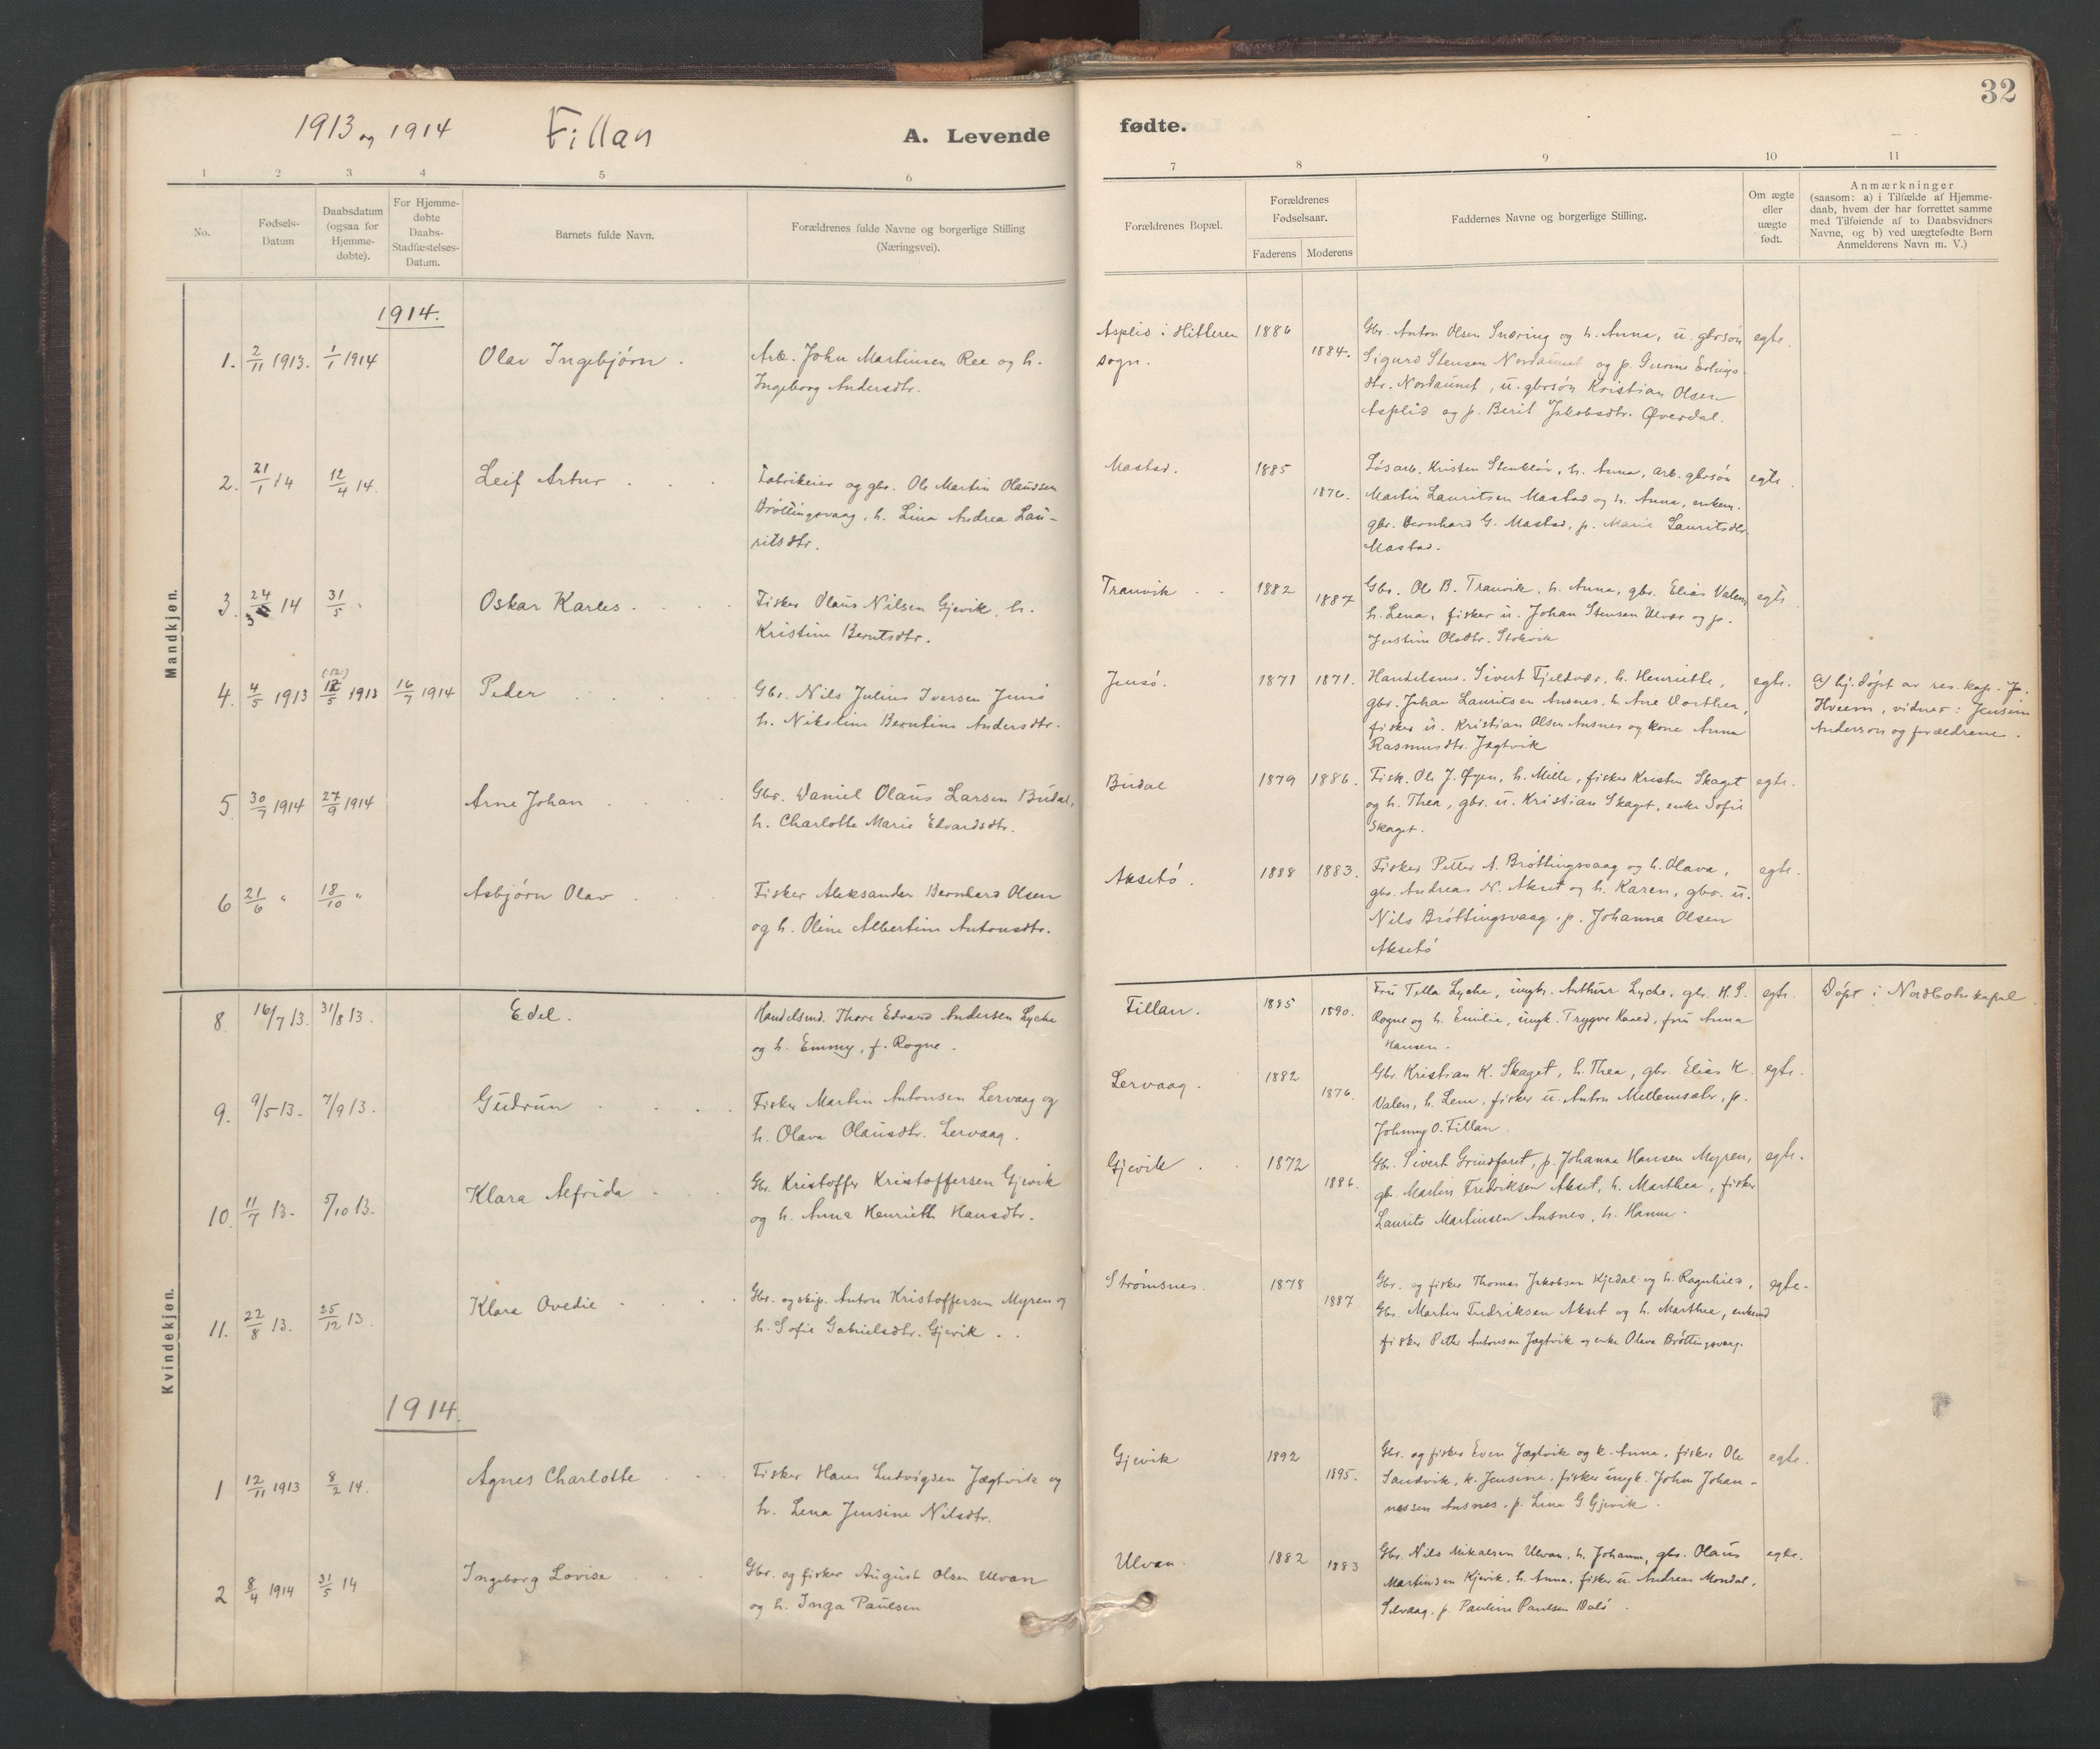 32
1913 og 1914 Fillan A. Levende fødte.
1 2 3 4 5 6 7 8 9 10 11
No.
Fødsels-
Datum
Daabsdatum
(ogsaa for
Hjemme-
døbte).
For Hjemme-
døbte
Daabs-
Stadfæstelses-
Datum.
Barnets fulde Navn.
Forældrenes fulde Navne og borgerlige Stilling
(Næringsvei).
Forældrenes Bopæl.
Forældrenes
Fødselsaar.
Faderens Moderens
Faddernes Navne og borgerlige Stilling.
Om ægte
eller
uægte
født.
Anmærkninger
(saasom: a) i Tilfælde af Hjemme-
daab, hvem der har forrettet samme
med Tilføiende af to Daabsvidners
Navne, og b) ved uægtefødte Børn
Anmelderens Navn m. V.)
Mandkjøn.
1914.
1. 2/11 1913. 1/1 1914 Olav Ingebjørn.
Arb. John Martinsen Ree og h.
Ingeborg Andersdtr.
Asplid i Hitteren
sogn.
1886 1884.
Gbr. Anton Olsen Snøring og h. Anna, u. gbrsøn
Sigurd Stensen Nordaunet og p. Gurine Erlings-
dtr. Nordaunet, u. gbrsøn Kristian Olsen
Asplid og p. Berit Jakobsdtr. Øverdal.
egte.
2. 21/1 14 12/4 14. Leif Artur
Fabrikeier og gbr. Ole Martin Olaussen
Brøttingsvaag, h. Lina Andrea Lau-
ritsdtr.
Mastad.
1885 1876.
Løsarb. Kristen Stenkløv, h. Anna, arb. gbrsøn
Martin Lauritsen Mastad og h. Anna, enkem.
gbr. Bernhard G. Mastad, p. Marie Lauritsdtr.
Mastad.
egte.
3. 24/3 14 31/5 " Oskar Karles.
Fisker Olaus Nilsen Gjevik, h.
Kristine Berntsdtr.
Tranvik
1882 1887
Gbr. Ole B. Tranvik, h. Anna, gbr. Elias Valen,
h. Lena, fisker u. Johan Stensen Ulvær og p.
Justine Olsdtr. Stokvik
egte.
4. 4/5 1913 (12.) 12/5 1913 16/7 1914 Peder
Gbr. Nils Julius Iversen Jensø
h. Nikoline Berntine Andersdtr.
Jensø.
1871 1871.
Handelsm. Sivert Fjeldvær, h. Henriette,
gbr. Johan Lauritsen Ansnes, h. Ane Dorthea,
fisker u. Kristian Olsen Ansnes og kone Anna
Rasmusdtr. Jægtvik
egte.
a) hj. døpt av res. kap. J.
Hveem, vidner: Jensine
Anderson og forældrene.
5. 30/7 1914 27/9 1914 Arne Johan
Gbr. Daniel Olaus Larsen Budal,
h. Charlotte Marie Edvardsdtr.
Budal
1879 1886.
Fisk. Ole J. Øyen, h. Mille, fisker Kristen Skaget
og h. Thea, gbr. u. Kristian Skaget, enke Sofie
Skaget.
egte.
6 21/6 " 18/10 " Asbjørn Olav
Fisker Aleksander Bernhard Olsen
og h. Oline Albertine Antonsdtr.
Aksetø.
1888 1883.
Fisker Petter A. Brøttingsvaag og h. Olava,
gbr. Andreas N. Akset og h. Karen, gbr. u.
Nils Brøttingsvaag, p. Johanna Olsen
Aksetø
egte.
Kvindekjøn.
8. 16/7 13. 31/8 13. Edel.
Handelsmd. Thore Edvard Andersen Lyche
og h. Emmy, f. Rogne.
Fillan.
1885 1890.
Fru Tella Lyche, ungk. Arthur Lyche, gbr. H. S.
Rogne og h. Emilie, ungk. Trygve Kaaed, fru Anna
Hansen.
egte.
Døpt i Nordbotn kapel.
9. 9/5 13. 7/9 13. Gudrun
Fisker Martin Antonsen Lervaag og
h. Olava Olausdtr. Lervaag.
Lervaag.
1882 1876.
Gbr. Kristian K. Skaget, h. Thea, gbr. Elias K.
Valen, h. Lene, fisker u. Anton Mellemsæter, p.
Johnny O. Fillan.
egte.
10. 11/7 13. 5/10 13. Klara Alfrida
Gbr. Kristoffer Kristoffersen Gjevik
og h. Anna Henriette Hansdtr.
Gjevik
1872 1886.
Gbr. Sivert Grindfaret, p. Johanna Hansen Myren,
gbr. Martin Fredriksen Akset, h. Marthea, fisker
Laurits Martinsen Ansnes, h. Hanna.
egte.
11. 22/8 13. 25/12 13. Klara Ovedie
Gbr. og skip. Anton Kristoffersen Myren og
h. Sofie Gabrielsdtr. Gjevik.
Strømsnes.
1878 1887
Gbr. og fisker Thomas Jakobsen Kjedal og h. Ragnhild,
Gbr. Martin Fredriksen Akset og h. Marthea, enkemd
fisker Peter Antonsen Jægtvik og enke Olava Brøttingsvaag.
egte.
1914.
1 12/11 1913 8/2 14. Agnes Charlotte
Fisker Hans Ludvigsen Jægtvik og
h. Lena Jensine Nilsdtr.
Gjevik
1892 1895.
Gbr. og fisker Even Jægtvik og k. Anna, fisker Ole
Sandvik, k. Jensine, fisker ungk. Johan Johan-
nessen Ansnes, p. Lina G. Gjevik.
egte.
2 8/4 1914 31/5 14 Ingeborg Lovise
Gbr. og fisker August Olsen Ulvan
og h. Inga Paulsen
Ulvan.
1882 1883
Gbr. Nils Mikalsen Ulvan, h. Johanna, gbr. Olaus
Martinsen Kjevik, h. Anna, fisker u. Andreas Mondal,
Selvaag, p. Pauline Paulsen Dalø.
egte.